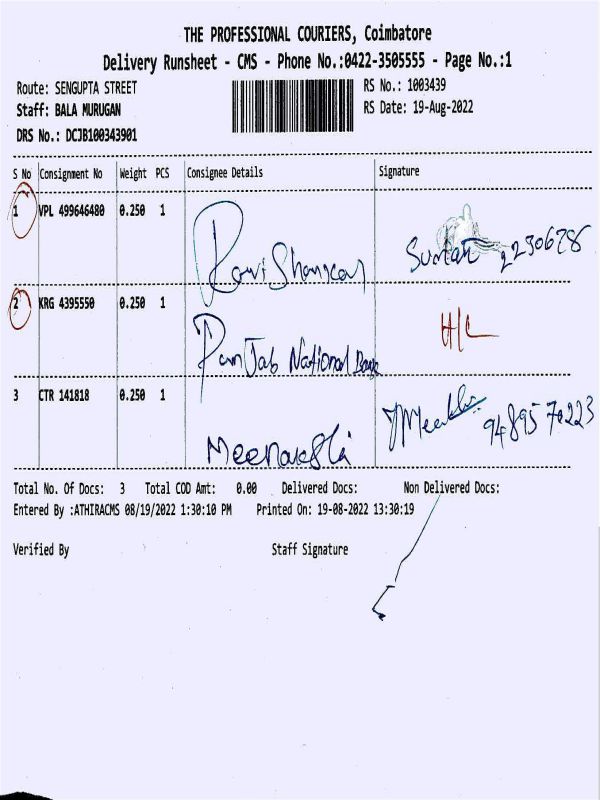 THE PROFESSIONAL COURIERS, Coimbatore
Delivery Runsheet - CMS - Phone No.:0422-3505555 - Page No.:1
Route: SENGUPTA STREET
RS No.: 1003439
Staff: BALA MURUGAN
RS Date: 19-Aug-2022
DRS No.: DCJB100343901
S No Consignment No Weight PCS Consignee Details Signature
1 VPL 499646480 0.250 1
Ravi Shankar
2 KRG 4395550 0.250 1
H/C
PunJab National Bank
3 CTR 141818 0.250 1
Meenakshi
Total No. Of Docs: 3 Total COD Amt: 0.00 Delivered Docs: Non Delivered Docs:
Entered By :ATHIRACMS 08/19/2022 1:30:10 PM Printed On: 19-08-2022 13:30:19
Verified By Staff Signature